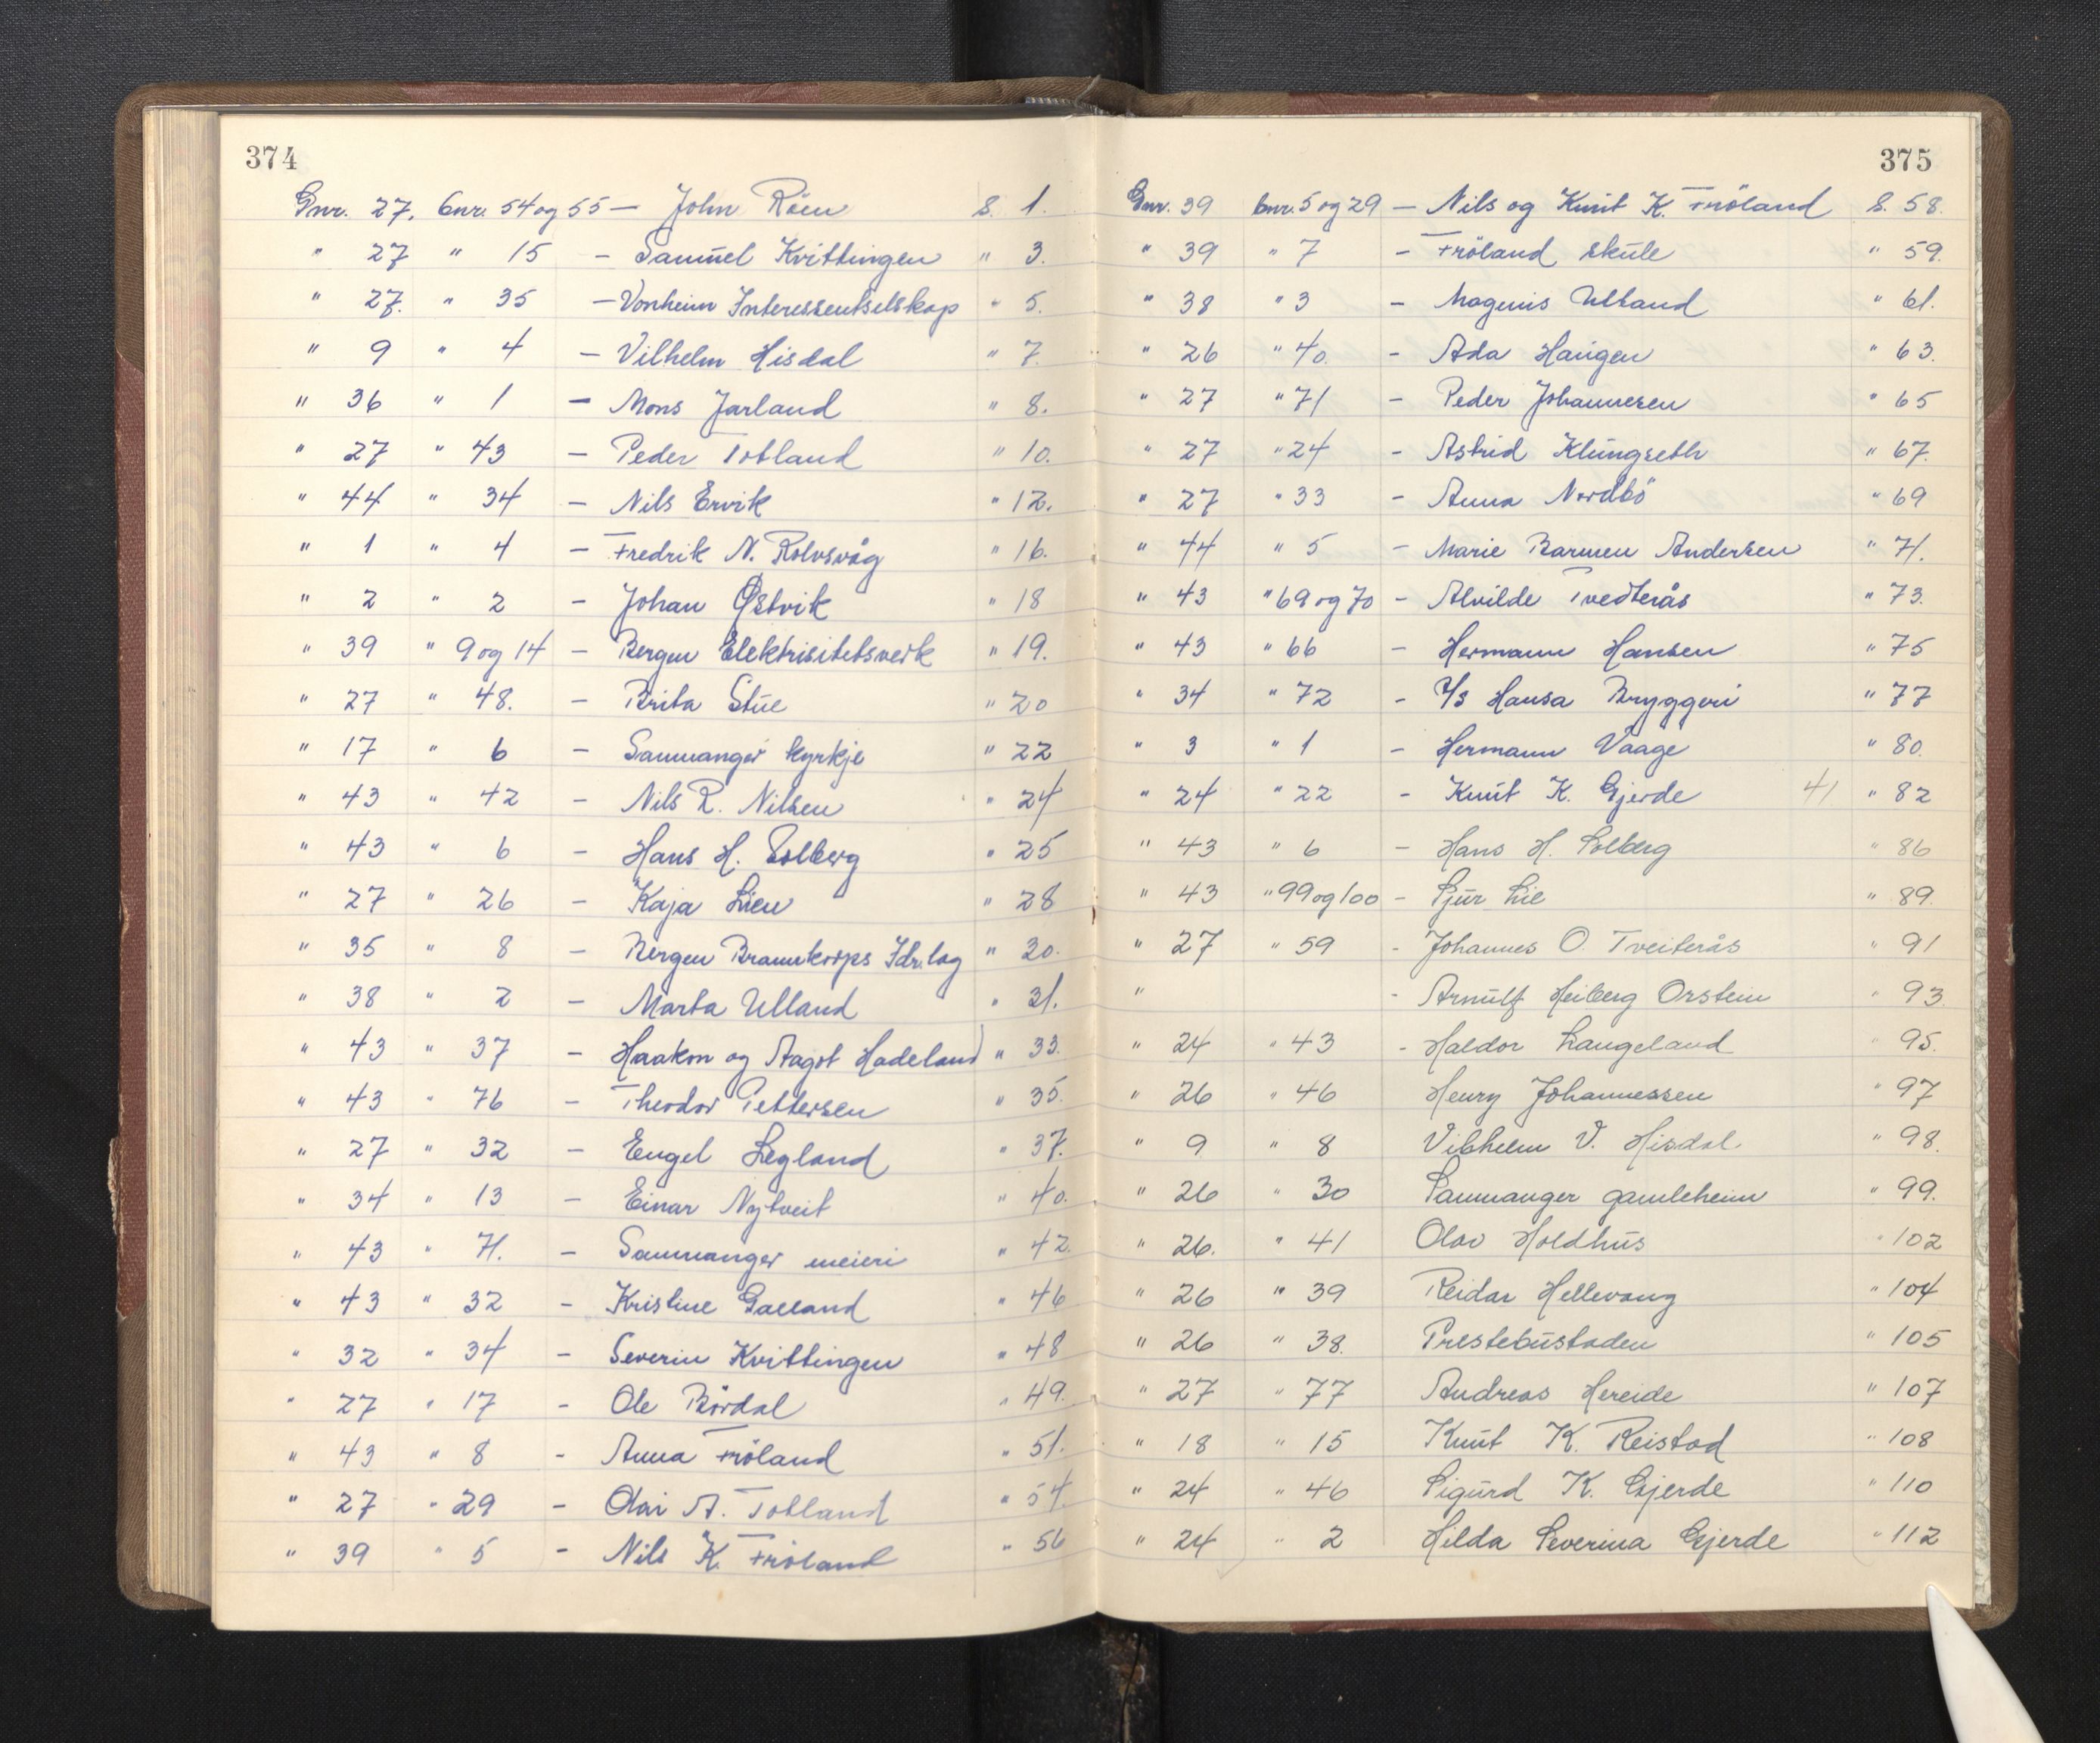 374
Gnr. 27, bnr. 54 og 55 — John Röen S. 1.
" 27 " 15 — Samuel Kvittingen " 3.
" 27. " 35 — Vonheim Interessentselskap " 5.
" 9 " 4 — Vilhelm Hisdal " 7.
" 36 " 1 — Mons Jarland " 8.
" 27 " 43 — Peder Totland " 10.
" 44 " 34 — Nils Ervik " 12.
" 1 " 4 — Fredrik N. Rolvsvåg " 16.
" 2 " 2 — Johan Østvik " 18
" 39 " 9 og 14 — Bergen Elektrisitetsverk " 19.
" 27 " 48. — Brita Stue " 20
" 17 " 6 — Samnanger kyrkje " 22
" 43 " 42 — Nils R. Nilsen " 24
" 43 " 6 — Hans H. Solberg " 25
" 27 " 26 — Kaja Lien " 28
" 35 " 8 — Bergen Brannkorps Idr.lag " 30.
" 38 " 2 — Marta Ulland " 31.
" 43 " 37 — Haakon og Aagot Hadeland " 33.
" 43 " 76 — Theodor Pettersen " 35.
" 27 " 32 — Engel Legland " 37.
" 34 " 13 — Einar Nytveit " 40.
" 43 " 71. — Samnanger meieri " 42.
" 43 " 32 — Kristine Galland " 46
" 32 " 34 — Severin Kvittingen " 48
" 27 " 17 — Ole Bördal " 49.
" 43 " 8 — Anna Fröland " 51.
" 27 " 29 — Olai A. Totland " 54.
" 39 " 5 — Nils K. Fröland " 56
375
Gnr. 39 bnr. 5 og 29 — Nils og Knut K. Fröland S. 58.
" 39 " 7 — Fröland skule " 59.
" 38 " 3 — Magnus Ulland " 61.
" 26 " 40. — Ada Haugen " 63.
" 27 " 71 — Peder Johannesen " 65
" 27 " 24 — Astrid Klungseth " 67.
" 27 " 33 — Anna Nordbö " 69
" 44 " 5 — Marie Barmen Andersen " 71.
" 43 " 69 og 70 — Alvilde Tvedterås " 73.
" 43 " 66 — Hermann Hansen " 75
" 34 " 72 — A/s Hansa Bryggeri " 77
" 3 " 1 — Hermann Vaage " 80.
" 24 " 22 — Knut K. Gjerde 41 " 82
" 43 " 6 — Hans H. Solberg " 86
" 43 " 99 og 100 — Sjur Lie " 89.
" 27 " 59 — Johannes O. Tveiterås " 91
" — Arnulf Heiberg Orstein " 93.
" 24 " 43 — Haldor Langeland " 95.
" 26 " 46 Henry Johannessen " 97
" 9 " 8 Vilhelm V. Hisdal " 98.
" 26 " 30 Samnanger gamleheim " 99.
" 26. " 41 Olav Holdhus " 102
" 26 " 39 Reidar Hellevang " 104
" 26 " 38. Prestebustaden " 105
" 27 " 77 Andreas Hereide " 107
" 18 " 15 Knut K. Reistad " 108
" 24 " 46 Sigurd K. Gjerde " 110
" 24 " 2 Hilda Severina Gjerde " 112